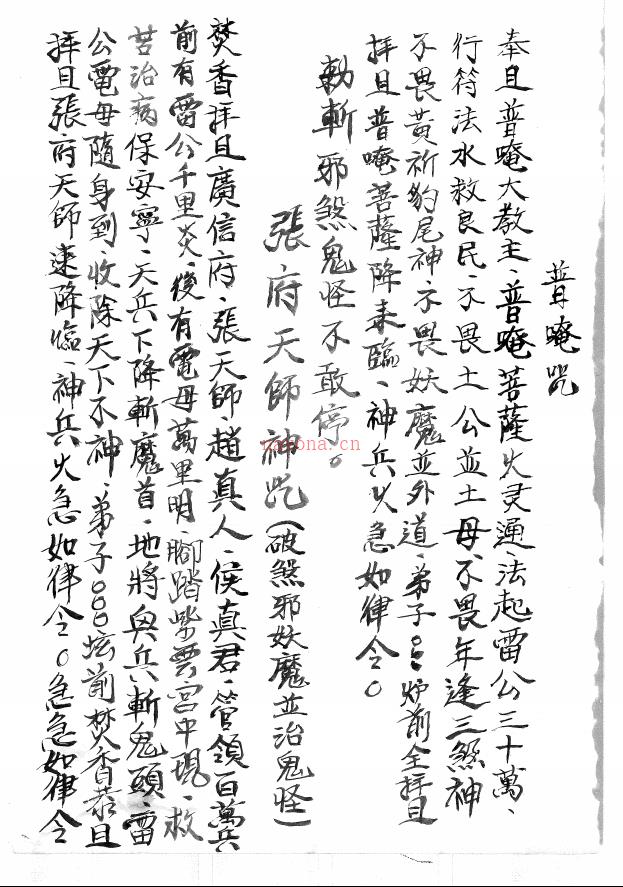 普唵咒
奉且普唵大教主、普唵菩薩火灵通、法起雷公三十萬、
行符法水救良民、不畏土公並土母、不畏年逢三煞神
不畏黃祈豹尾神、不畏妖魔並外道、弟子○○○炉前全拜且
拜且普唵菩薩降來臨、神兵火急如律令○
勅斬邪煞鬼怪不敢停。
張府天師神咒(破煞邪妖魔並治鬼怪)
焚香拜且廣信府、張天師趙真人、侯真君、管領百萬兵
前有雷公千里炎、後有電母萬里明、腳踏紫雲宮中現、救
苦治病保安寧、天兵下降斬魔首、地將興兵斬鬼頭、雷
公電母隨身到、收除天下不神、弟子○○○坛前焚香恭且
拜且張府天師速降臨、神兵火急如律令○急急如律令
nayona.cn